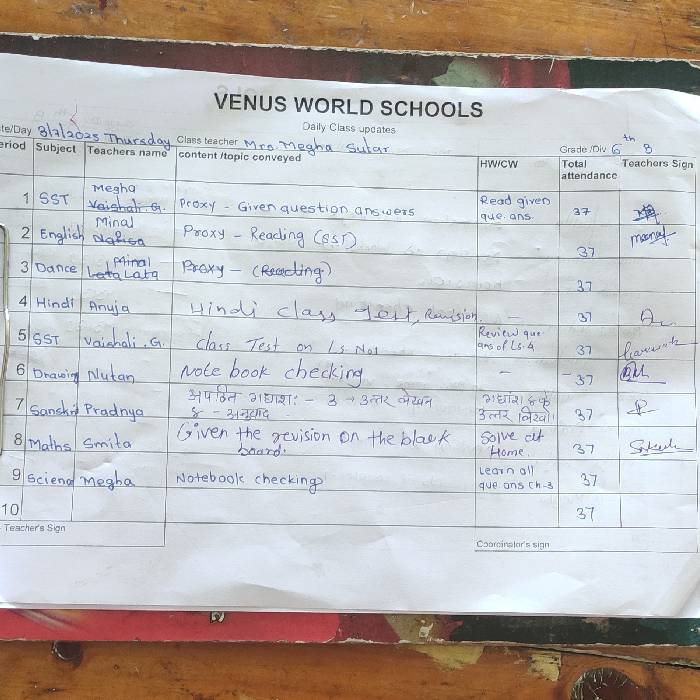 VENUS WORLD SCHOOLS
Daily Class updates
te/Day 3/7/2025 Thursday Class teacher Mrs. Megha Sutar Grade /Div 6th B
eriod Subject Teachers name content /topic conveyed HW/CW Total attendance Teachers Sign
1 SST Megha Vaishali. G. Proxy - Given question answers Read given que. ans. 37
2 English Minal Proxy - Reading (SST) 37
3 Dance Minal Lata Proxy - (Reading) 37
4 Hindi Anuja Hindi class Test, Revision. - 37
5 SST Vaishali. G. Class Test on Ls. No1 Review que ans of Ls. 4 37
6 Drawing Nutan Note book checking - - 37
7 Sanskrit Pradnya अपठित गद्यांश: - 3 → उत्तर लेखन उत्तर लिखो। 37
- अनुवाद
8 Maths Smita Given the revision on the black board. Solve at Home. 37
9 Scienc Megha Notebook checking Learn all que. ans ch-3 37
10 37
Teacher's Sign
Coordinator's sign